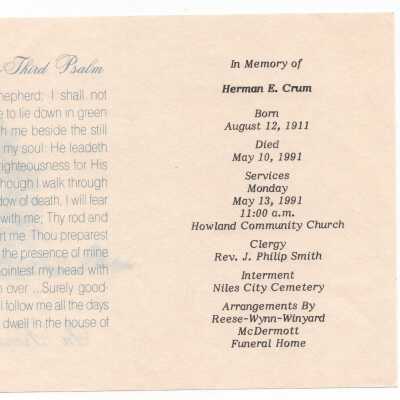 -Third Psalm
shepherd; I shall not
e to lie down in green
h me beside the still
my soul: He leadeth
righteousness for His
hough I walk through
dow of death, I will fear
with me; Thy rod and
rt me. Thou preparest
the presence of mine
pointest my head with
over ...Surely good-
l follow me all the days
dwell in the house of
In Memory of
Herman E. Crum
Born
August 12, 1911
Died
May 10, 1991
Services
Monday
May 13, 1991
11:00 a.m.
Howland Community Church
Clergy
Rev. J. Philip Smith
Interment
Niles City Cemetery
Arrangements By
Reese-Wynn-Winyard
McDermott
Funeral Home